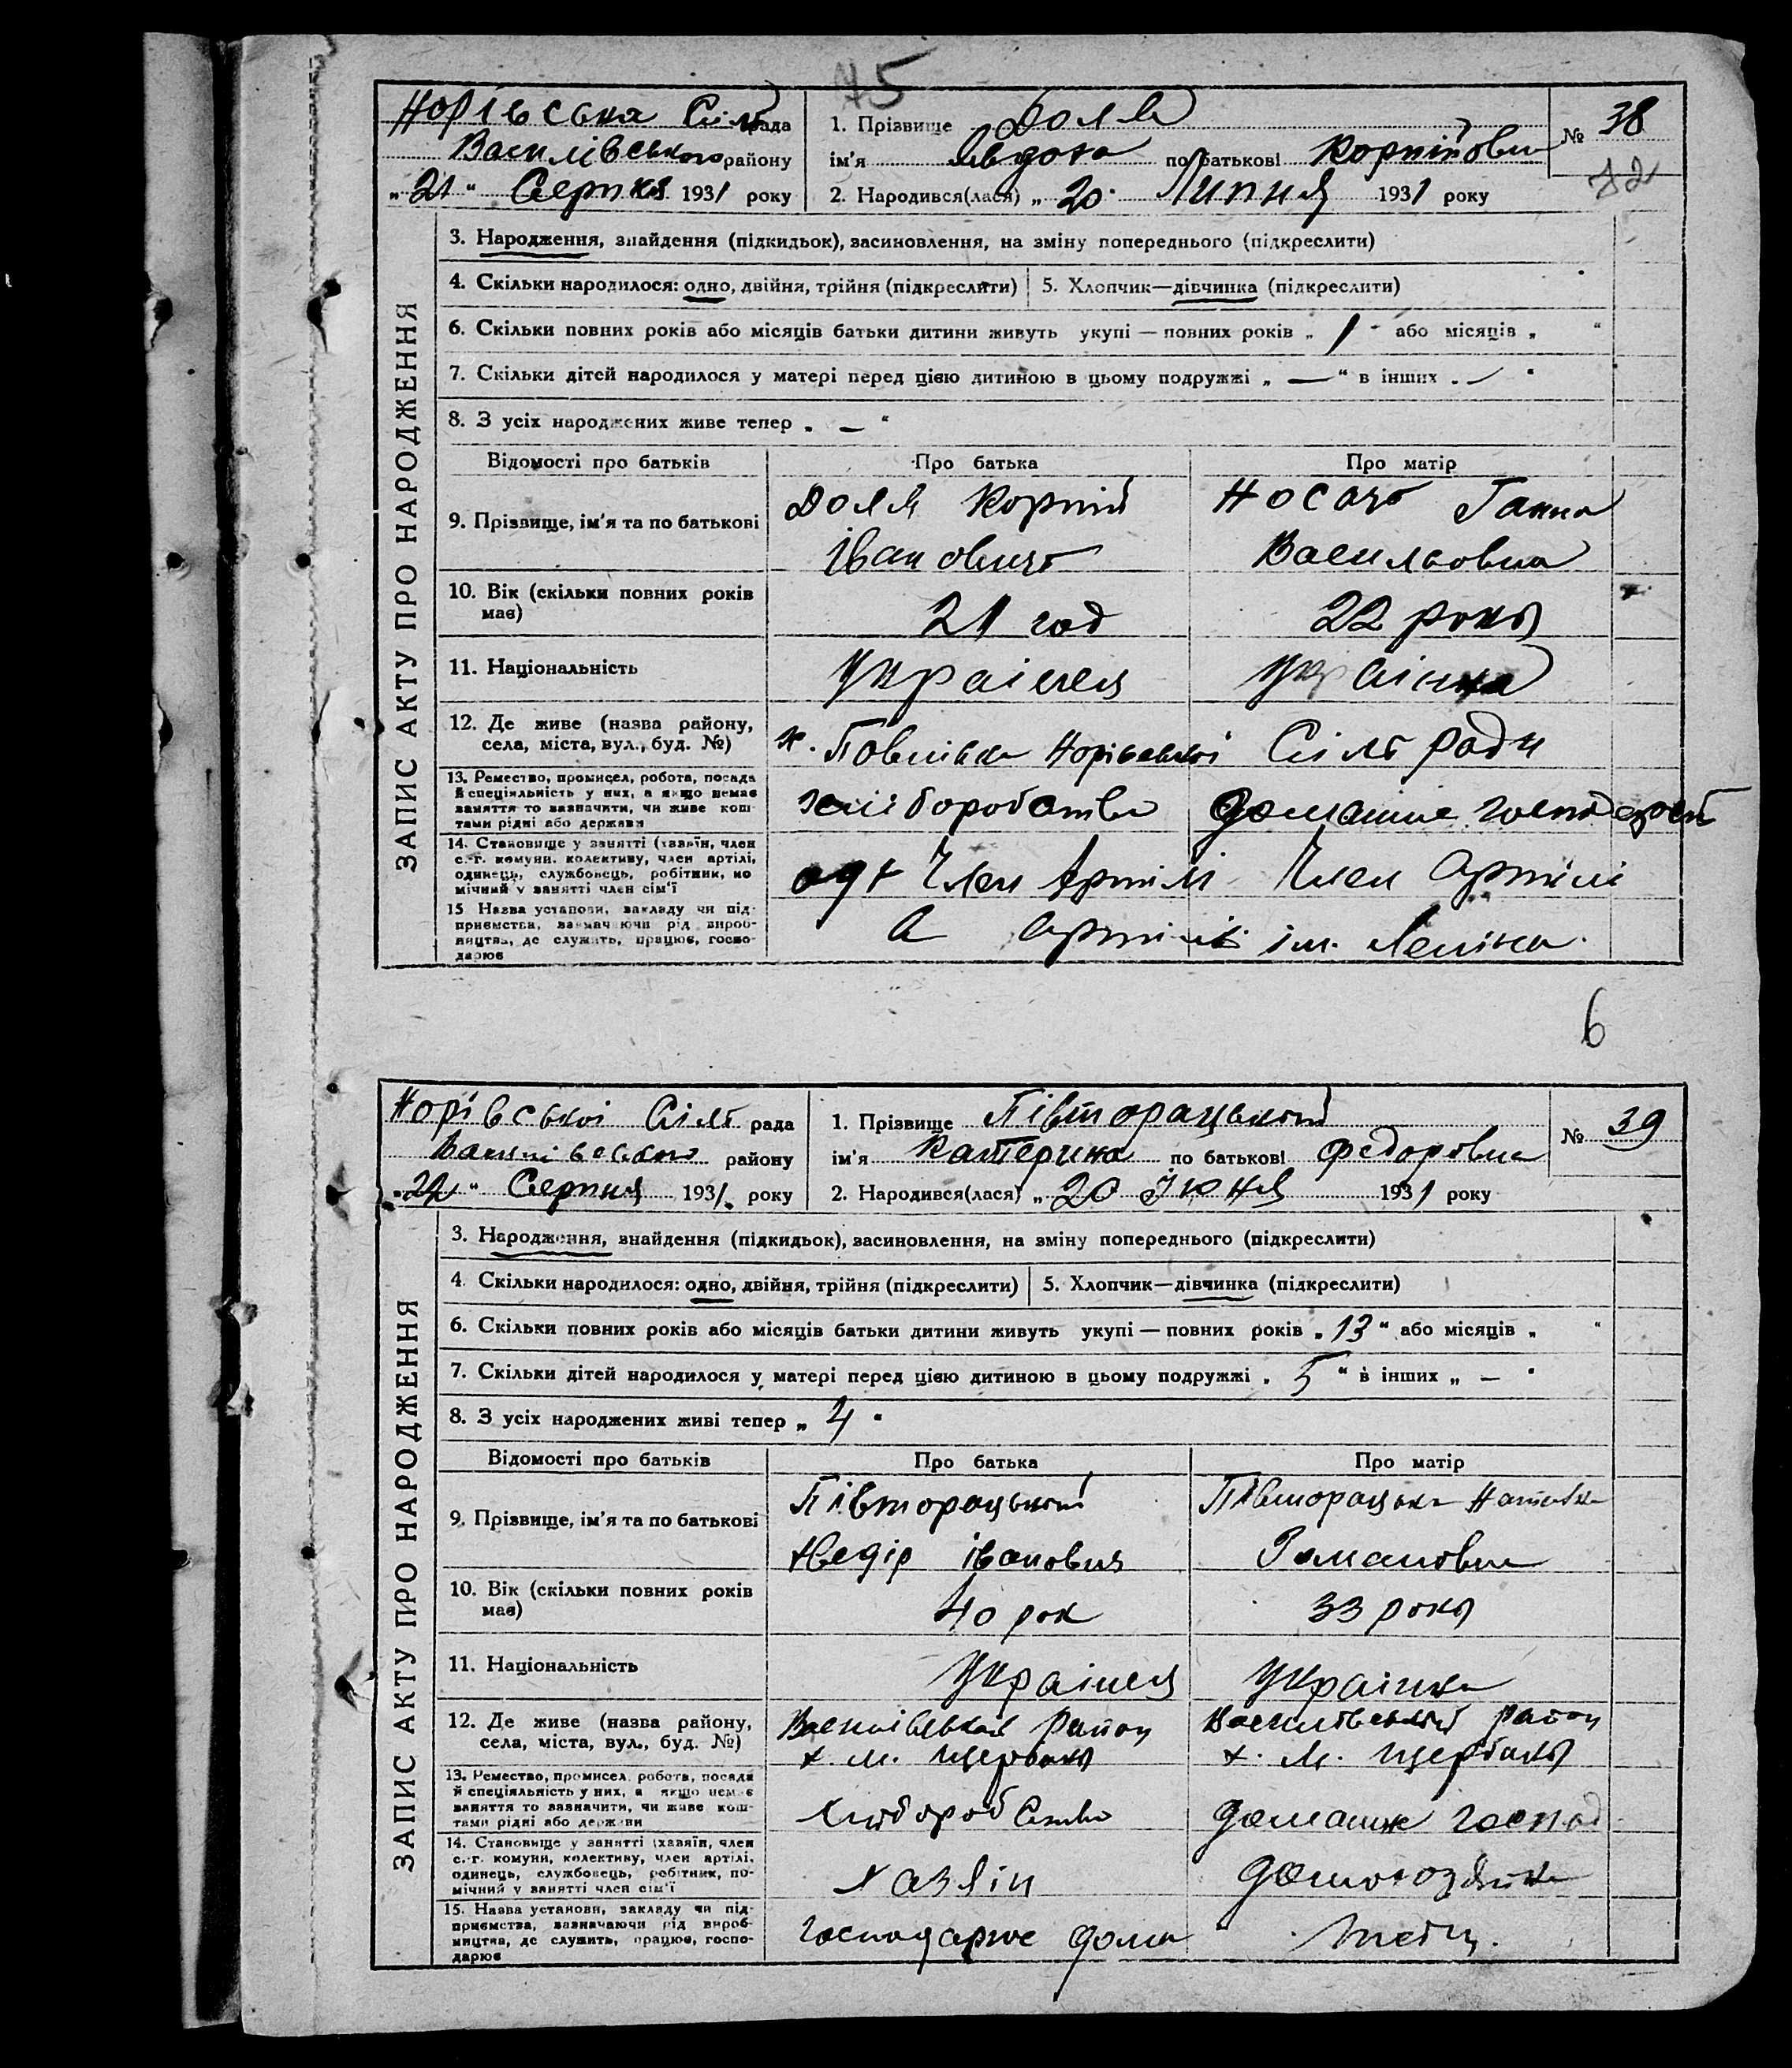 75
Норівська Сільрада
Василівського району
„21“ Серпня 1931 року
1. Прізвище Доля
ім'я Явдоха по батькові Корнійовна
2. Народився(лася) „20“ Липня 1931 року
№ 38
72
ЗАПИС АКТУ ПРО НАРОДЖЕННЯ
3. Народження, знайдення (підкидьок), засиновлення, на зміну попереднього (підкреслити)
4. Скільки народилося: одно, двійня, трійня (підкреслити) 5. Хлопчик—дівчинка (підкреслити)
6. Скільки повних років або місяців батьки дитини живуть укупі — повних років „1“ або місяців „ “
7. Скільки дітей народилося у матері перед цією дитиною в цьому подружжі „—“ в інших „—“
8. З усіх народжених живе тепер „—“
Відомості про батьків Про батька Про матір
9. Прізвище, ім'я та по батькові
Доля Корній
Іванович
Носач Ганна
Васильовна
10. Вік (скільки повних років
має)
21 год
22 роки
11. Національність
Українец
Українка
12. Де живе (назва району,
села, міста, вул., буд. №)
х. Норівської Сіль ради
13. Ремество, промисел, робота, посада
й спеціяльність у них, а якщо немає
заняття то зазначити, чи живе кош-
тами рідні або держави
хліборобство
домашне
14. Становище у занятті (хазяїн, член
с.-г. комуни, колективу, член артілі,
одинець, службовець, робітник, по
мічний у занятті член сім'ї
Член Артілі
Член Артілі
15 Назва установи, закладу чи під-
приємства, зазначаючи рід вироб-
ництва, де служить, працює, госпо-
дарює
Артілі ім. Леніна.
6
Норівської Сіль рада
Василівського району
Серпня 1931 року
1. Прізвище Півторацький
ім'я Катерина по батькові Федоровна
2. Народився(лася) „20 Июня 1931 року
№ 39
ЗАПИС АКТУ ПРО НАРОДЖЕННЯ
3. Народження, знайдення (підкидьок), засиновлення, на зміну попереднього (підкреслити)
4. Скільки народилося: одно, двійня, трійня (підкреслити) 5. Хлопчик—дівчинка (підкреслити)
6. Скільки повних років або місяців батьки дитини живуть укупі — повних років „13“ або місяців „ “
7. Скільки дітей народилося у матері перед цією дитиною в цьому подружжі „5“ в інших „—“
8. З усіх народжених живі тепер „4“
Відомості про батьків Про батька Про матір
9. Прізвище, ім'я та по батькові
Півторацький
Хведір Івановия
Півторацька
Романовна
10. Вік (скільки повних років
має)
40 рок
33 роки
11. Національність
Українец
Українка
12. Де живе (назва району,
села, міста, вул., буд. №)
Василівський Район
х. М. Щербаки
Василівський район
х. М. Щербаки
13. Ремество, промисел, робота, посада
й спеціяльність у них, а якщо немає
заняття то зазначити, чи живе кош-
тами рідні або держави
Хліборобство
домашнє господ
14. Становище у занятті (хазяїн, член
с.-г. комуни, колективу, член артілі,
одинець, службовець, робітник, по-
мічний у занятті член сім'ї
Хазяїн
15. Назва установи, закладу чи під-
приємства, зазначаючи рід вироб-
ництва, де служить, працює, госпо-
дарює
господарює дома